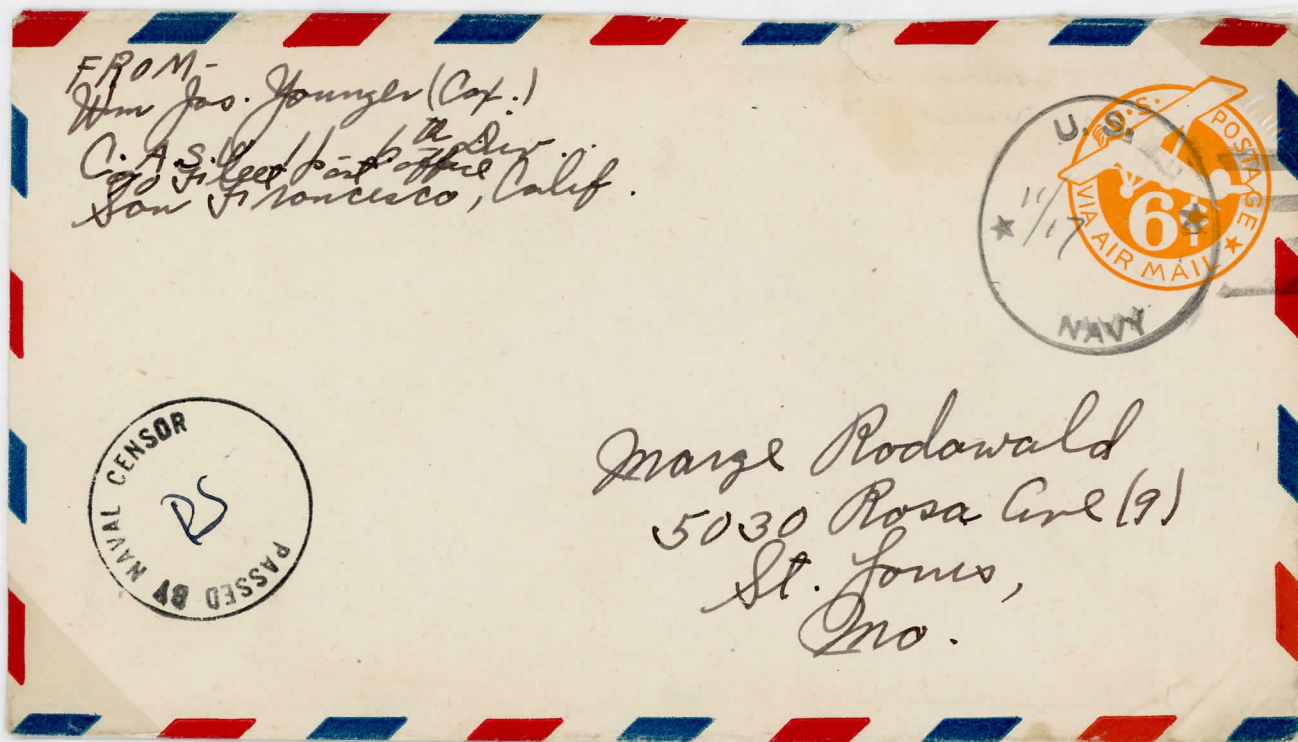 FROM-
Wm Jos. Younger (Cox.)
C.A.S.U. 11 - 6th Div.
c/o Fleet Post Office
San Francisco, Calif.
U.S. POSTAGE
VIA AIR MAIL
6¢
U.S.
11/17
NAVY
PASSED BY NAVAL CENSOR
RS
Marge Rodawald
5030 Rosa Ave (9)
St. Louis,
Mo.